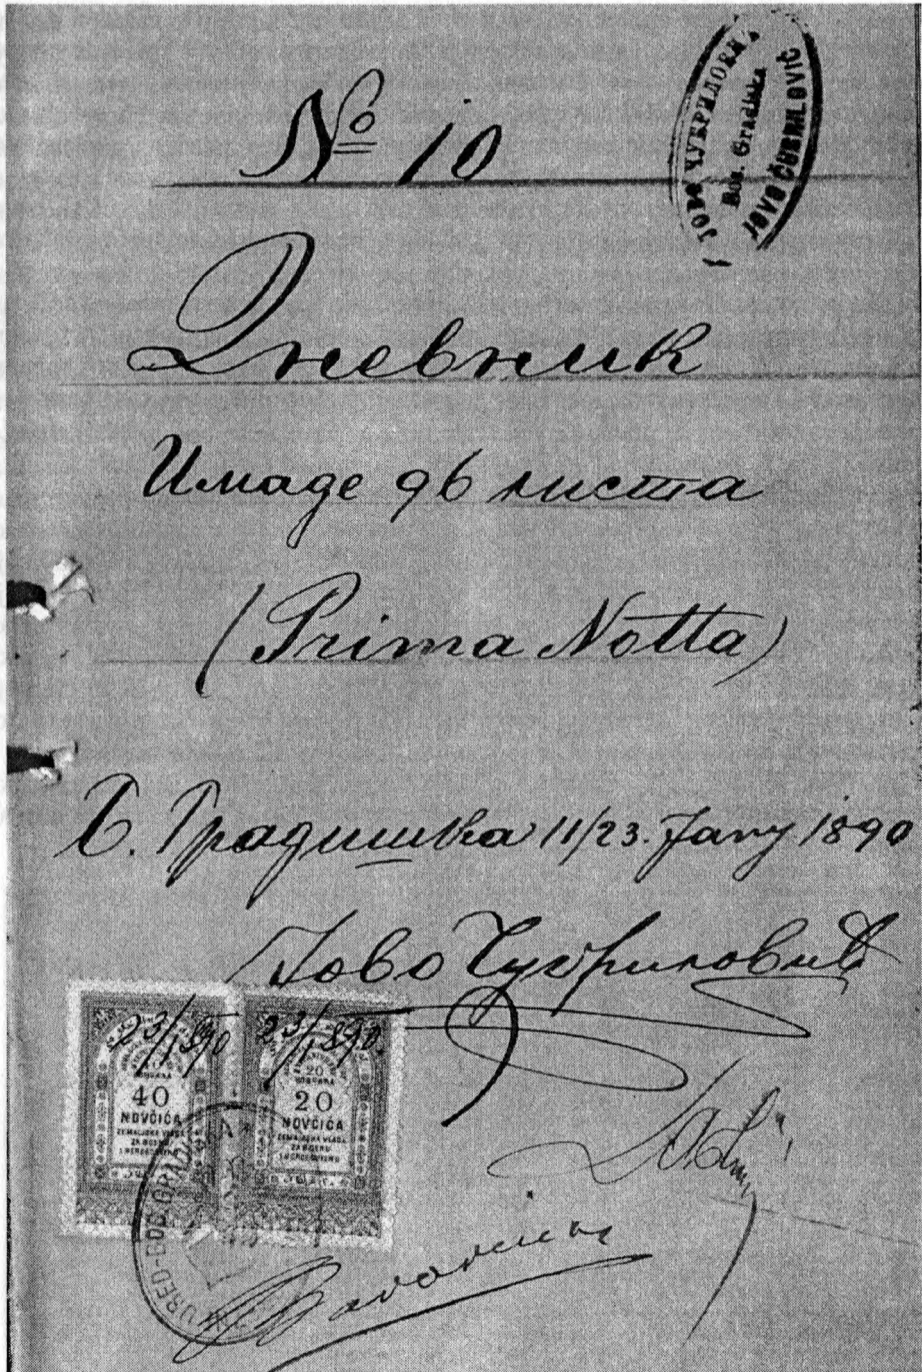 № 10
ЈОВО ЧУБРИЛОВИЋ
Bos. Gradiska
JOVO ČUBRILOVIĆ
Дневник
Имаде 96 листа
(Prima Notta)
Б. Градишка 11/23. Jany 1890
Јово Чубриловић
23/1 890
23/1 890
40
NOVČIĆA
ZEMALJSKA VLADA
ZA BOSNU
I HERCEGOVINU
20
20
NOVČIĆA
ZEMALJSKA VLADA
ZA BOSNU
I HERCEGOVINU
URED